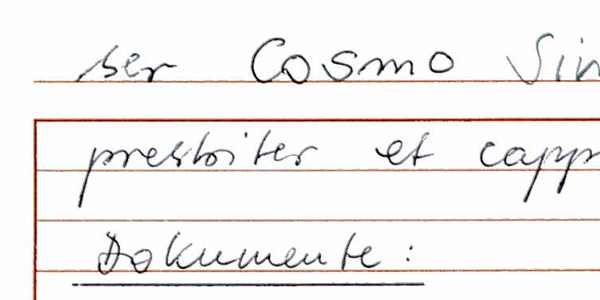 ser Cosmo Sin
presbiter et capp
Dokumente: